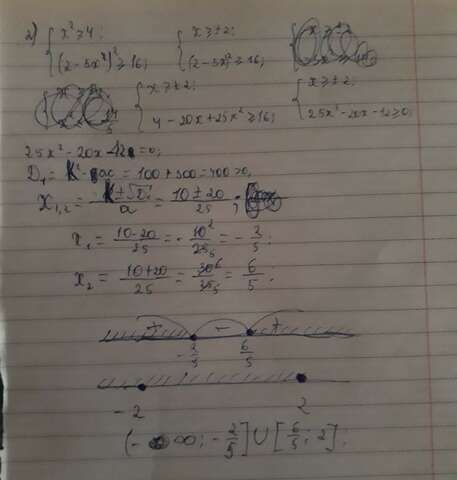 2) { x² ≥ 4; { x ≥ ±2; {
{ (2 - 5x)² ≥ 16; { (2 - 5x)² ≥ 16;
{ x ≥ ±2; { x ≥ ±2;
{ 4 - 20x + 25x² ≥ 16; { 25x² - 20x - 12 ≥ 0;
25x² - 20x - 12 = 0;
D₁ = k² - ac = 100 + 300 = 400 > 0,
x₁,₂ = (k ± √D₁)/a = (10 ± 20)/25 ;
x₁ = (10 - 20)/25 = - 10²/25₅ = - 2/5 ;
x₂ = (10 + 20)/25 = 30⁶/25₅ = 6/5 ;
+ - +
- 2/5 6/5
-2 2
(-∞; - 2/5] ∪ [6/5; 2];